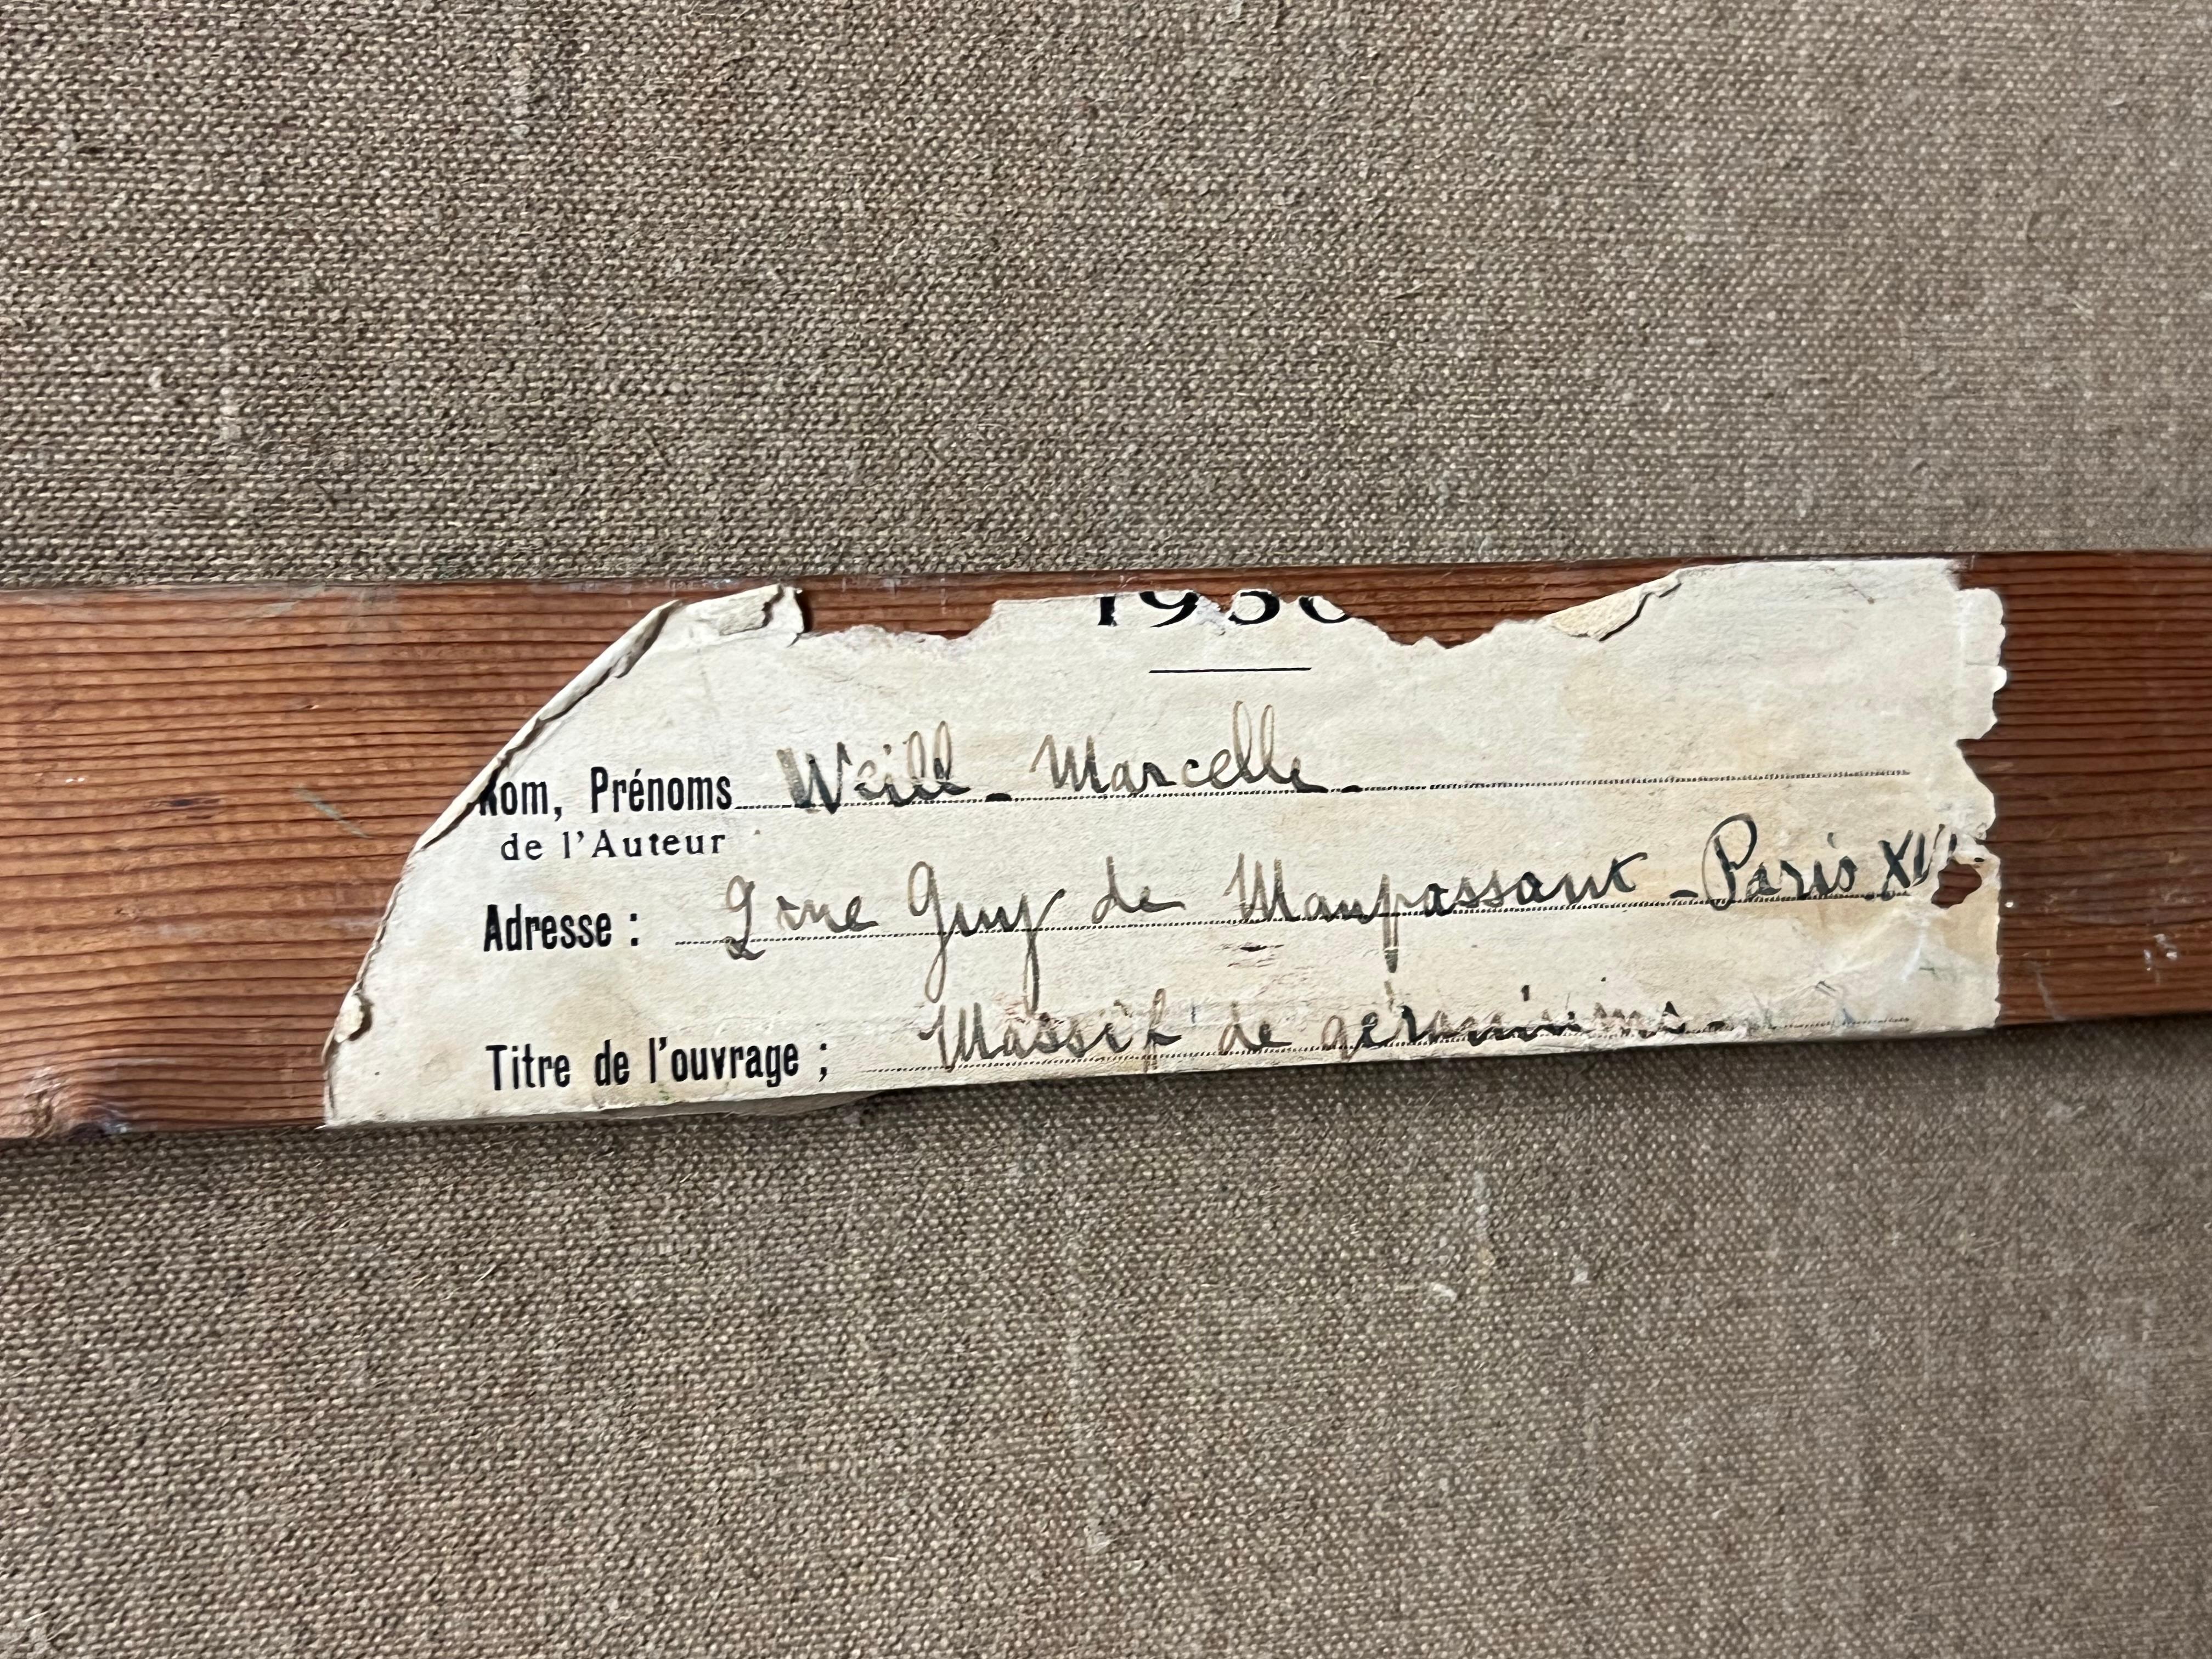 Nom, Prénoms Weill - Marcelle -
de l'Auteur
Adresse : 2 rue Guy de Maupassant - Paris XVI
Titre de l'ouvrage ; Massif de géraniums -